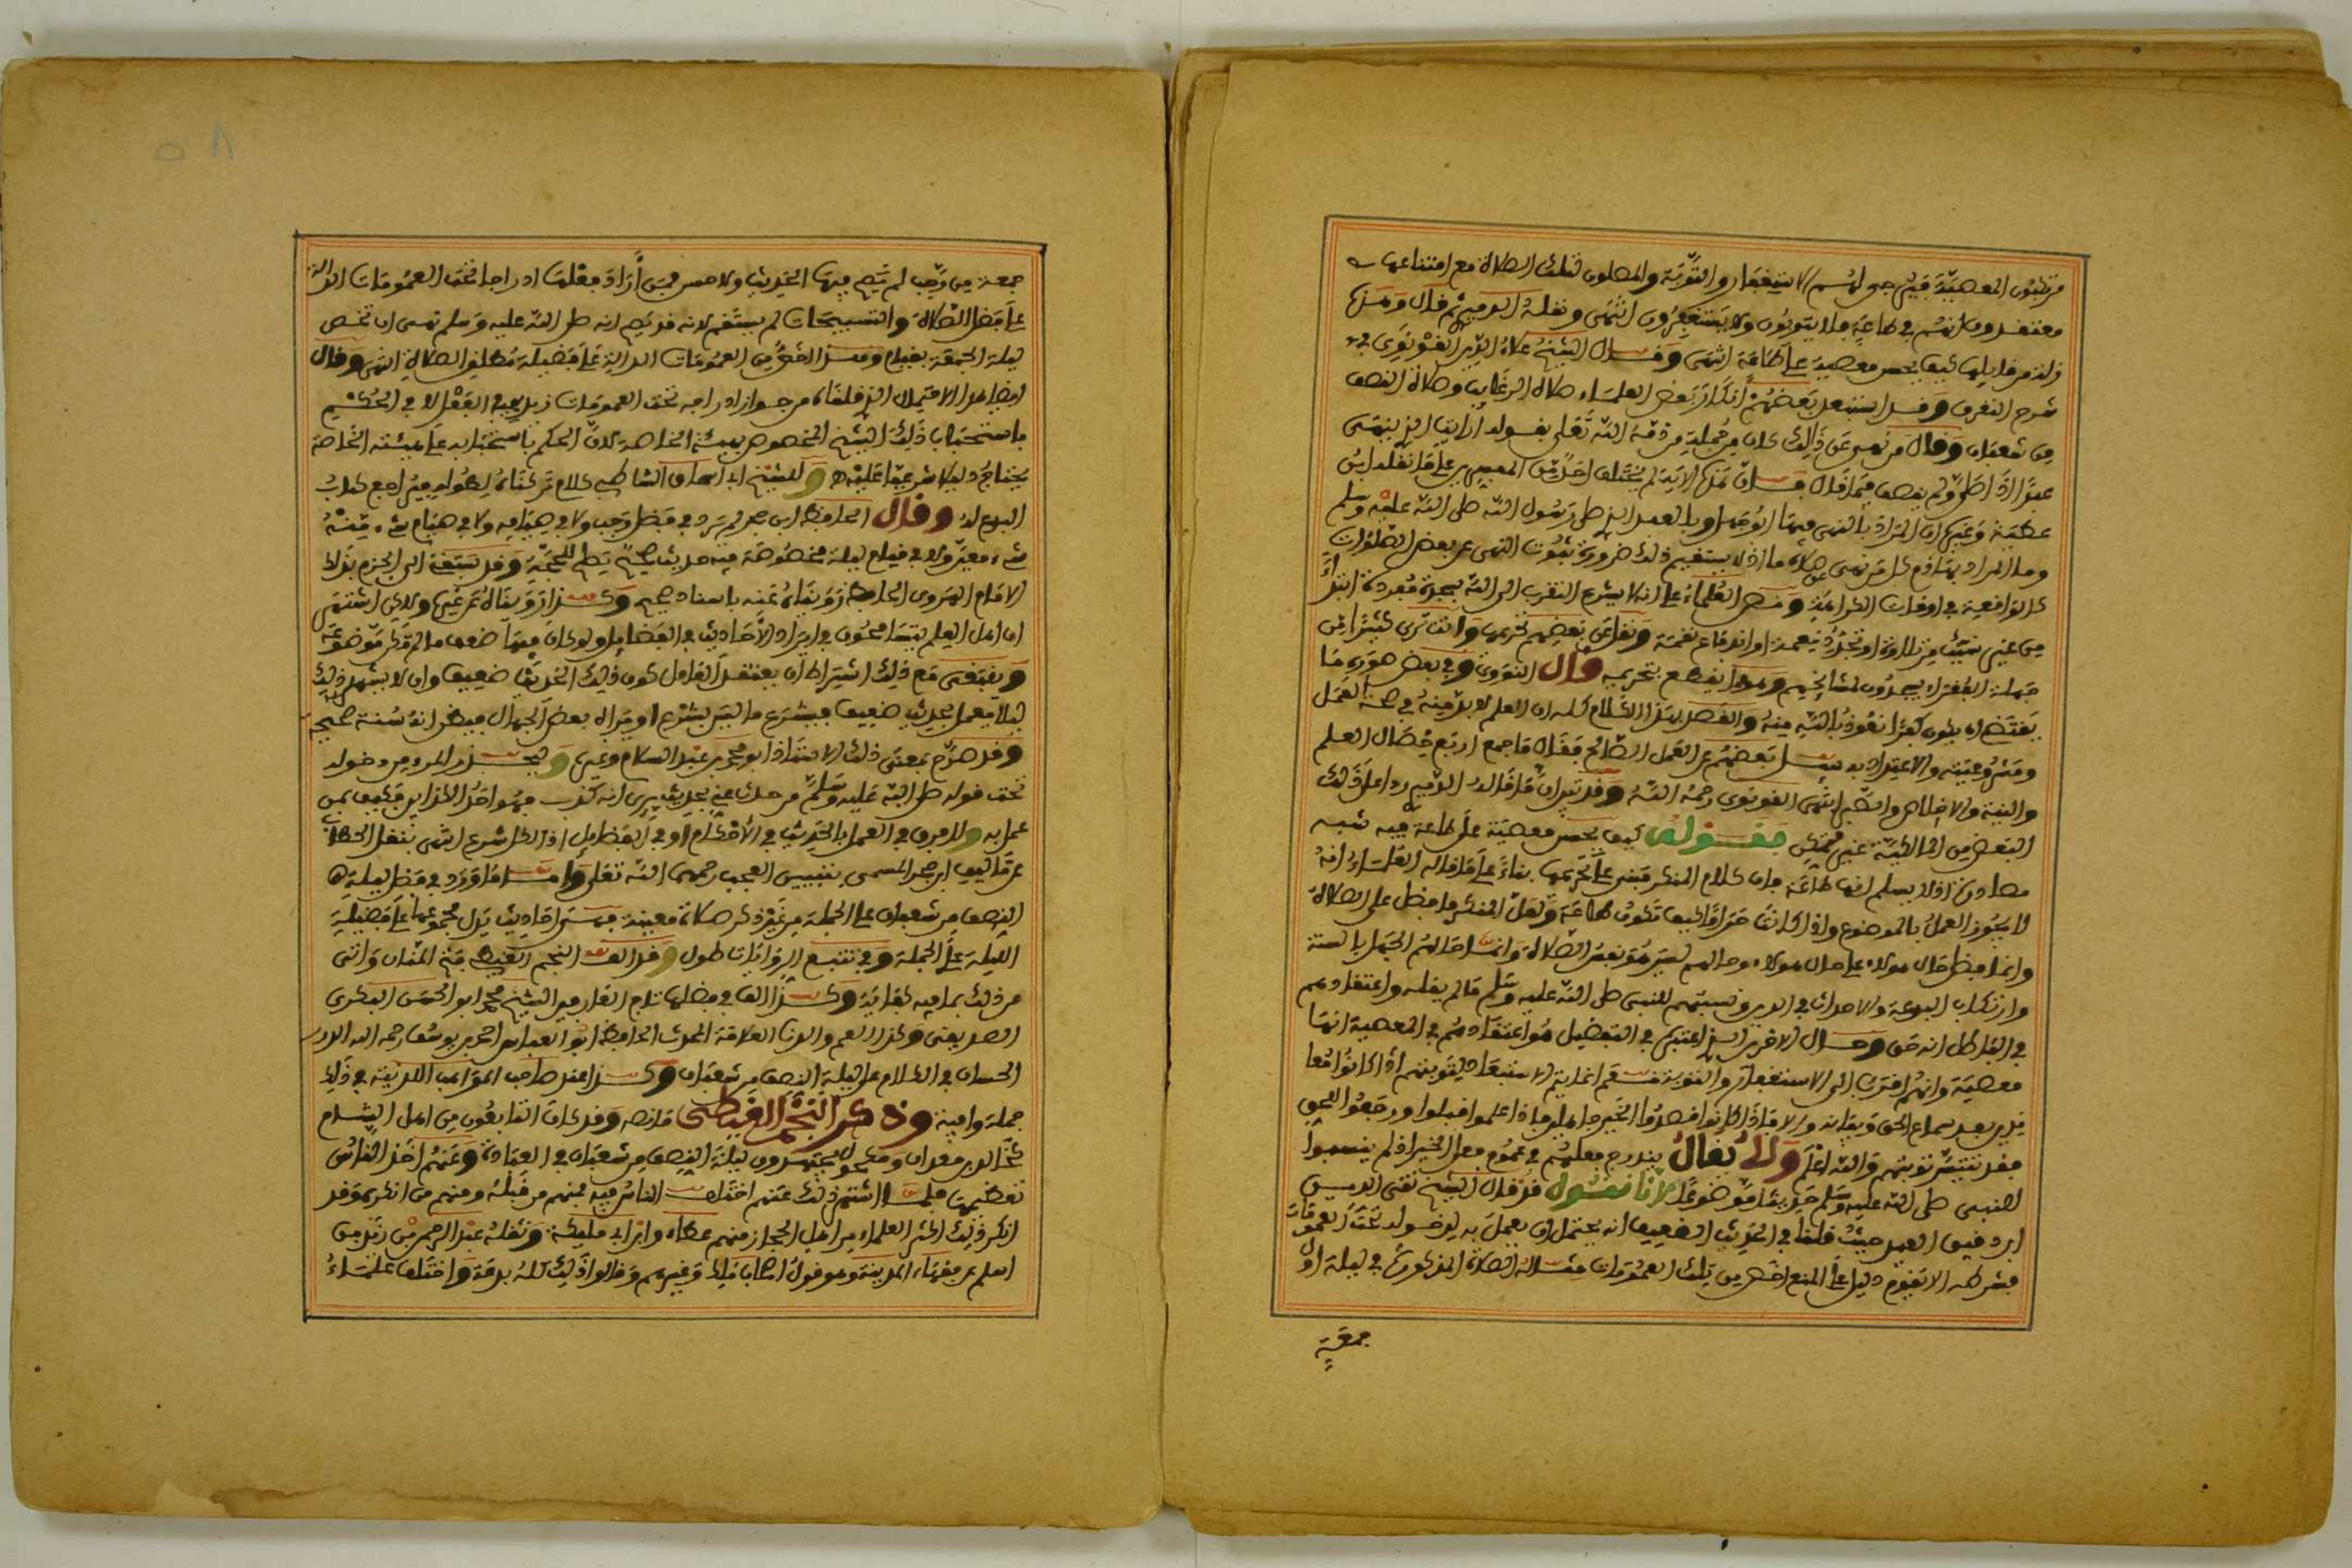 مرتكبون المعصية فيرجى لهم الاستغفار والتوبة والمصلون لتلك الصلاة مع امتناعها
معتقدون انهم في طاعة فلا يتوبون ولا يستغفرون انتهى ونقله الدميري ثم قال وهذا
زلة من قايلها كيف يحسن معصية على طاعة انتهى وقال الشيخ علاء الدين القونوي في
شرح التعرف وقد استبعد بعضهم انكار بعض العلماء صلاة الرغايب وصلاة النصف
من شعبان وقال من نهى عن ذلك كان من جملة من ذمه الله تعلى بقوله أرايت الذي ينهى
عبدًا اذا صلى ولم ينصف فيما قال فان هذه الاية لم يختلف احد من المفسرين على ما نقله ابن
عطية وغيره ان المراد بالنهي فيها ابو جهل وبالعبد الذي صلى رسول الله صلى الله عليه وسلم
وما المراد بها ذم كل من نهى عن صلاة ما اذ لا يستقيم ذلك ضرورة ثبوت النهي عن بعض الصلوات
كالواقعة في اوقات الكراهة ونص العلماء على انه لا يشرع التقرب الى الله بسجدة مفردة ابتداءً
من غير سبب من تلاوة او تجدد نعمة او اندفاع نقمة ونقل عن بعضهم تحريمها وانت ترى كثيرًا من
جهلة الفقراء يسجدون لمشايخهم وهذا يقطع بتحريمه قال النووي وفي بعض صوره ما
يقتضي ان يكون كفرًا نعوذ بالله منه والقصد بهذا الكلام كله ان العلم لا بد منه في صحة العمل
ومشروعيته والاعتداد به سئل بعضهم عن العمل الصالح فقال ما جمع اربع خصال العلم
والنية والاخلاص والصبر انتهى القونوي رحمه الله وقد تبين ان ما قاله الدميري ردا على ذلك
البعض من المالكية غير متمكن فقوله كيف يحسن معصية على طاعة فيه شبه
مصادرة اذ لا يسلم انها طاعة فان كلام المنكر مبني على تحريمها بناءً على ما قاله العلماء انه
لا يجوز العمل بالموضوع واذا كانت حراما كيف تكون طاعة ولعل المنكر ما فضل على الصلاة
وانما فضل حال هولاء على حال هولاء وحالهم ليس هو نفس الصلاة وانما حالهم الجهل بالسنة
وارتكاب البدعة والاحداث في الدين ونسبتهم للنبي صلى الله عليه وسلم ما لم يقله واعتقادهم
في الباطل انه حق وحال الاخرين الذي اعتبر في التفضيل هو اعتقادهم في المعصية انها
معصية وانهم اقرب الى الاستغفار والتوبة نعم غايته الاستبعاد لتوبتهم اذا كانوا معا
نذير بعد سماع الحق وبيانه والا فاذا كانوا قصدوا الخير جاهلين فاذا علموا اقبلوا ورجعوا للحق
فقد تتيسر توبتهم والله اعلم ولا يقال يندرج فعلهم في عموم فعل الخير اذ لم ينسبوا
للنبي صلى الله عليه وسلم حديثا موضوعًا لانا نقول قد قال الشيخ تقي الدين
ابن دقيق العيد حيث قلنا في الحديث الضعيف انه يحتمل ان يعمل به لدخوله تحت العمومات
فشرطه الا يقوم دليل على المنع اخص من تلك العمومات مثاله الصلاة المذكورة في ليلة اول
جمعة
جمعة من رجب لم يصح فيها الحديث ولا حسن فمن أراد فعلها ادراجا تحت العمومات الدالة
على فضل الصلاة والتسبيحات لم يستقم لانه قد صح انه صلى الله عليه وسلم نهى ان تخص
ليلة الجمعة بقيام وهذا اخص من العمومات الدالة على فضيلة مطلق الصلاة انتهى وقال
ايضا هذا الاحتمال الذي قلناه من جواز ادراجه تحت العمومات نريد به في الفعل لا في الحكم
باستحباب ذلك الشيء المخصوص بهيئته الخاصة لان الحكم باستحبابه على هيئته الخاصة
يحتاج دليلا شرعيا عليه وللشيخ ابي اسحاق الشاطبي كلام تركناه لطوله فيراجع كتاب
البدع له وقال الحافظ ابن حجر لم يرد في فضل رجب ولا في صيامه ولا في صيام شيء منه
شيء معين ولا في قيام ليلة مخصوصة فيه حديث صحيح يصلح للحجة وقد سبقني الى الجزم بذلك
الامام الهروي الحافظ رويناه عنه باسناد صحيح وكذا رويناه عن غيره ولكن اشتهر
ان اهل العلم يتسامحون في ايراد الاحاديث في الفضايل ولو كان فيها ضعف ما لم تكن موضوعة
وينبغي مع ذلك اشتراط ان يعتقد العامل كون ذلك الحديث ضعيفا وان لا يشهر ذلك
ليلا يعمل بحديث ضعيف فيشرع ما ليس بشرع او يراه بعض الجهال فيظن انه سنة صحيحة
وقد صرح بمعنى ذلك الاستاذ ابو محمد بن عبد السلام وغيره وليحذر المرء من دخوله
تحت قوله صلى الله عليه وسلم من حدث عني بحديث يرى انه كذب فهو احد الكذابين فكيف بمن
عمل به ولا فرق في العمل بالحديث في الأحكام او في الفضايل اذ الكل شرع انتهى بنقل الحطاب
عن تاليف ابن حجر المسمى بتبيين العجب رحمهما الله تعلى وأما ما ورد في فضل ليلة
النصف من شعبان على الجملة من غير ذكر صلاة معينة فهي احاديث يدل مجموعها على فضيلة
الليلة على الجملة وفي تتبع الروايات طول وقد الف النجم الغيطي فتح المنان واتى
من ذلك بما فيه كفاية وكذا الف في فضلها تاج العارفين الشيخ محمد ابو الحسن البكري
الصديقي وكذا العم والدنا العلامة المحدث الحافظ ابو العباس احمد بن يوسف رحمه الله الدرر
الحسان في الكلام على ليلة النصف من شعبان وكذا عند صاحب المواهب اللدنية في ذلك
جملة وافية وذكر النجم الغيطي ما نصه وقد كان التابعون من اهل الشام
كخالد بن معدان ومكحول يجتهدون ليلة النصف من شعبان في العبادة وعنهم اخذ الناس
تعظيمها فلما اشتهر ذلك عنهم اختلف الناس فيه فمنهم من قبله ومنهم من انكره وقد
انكر ذلك اكثر العلماء من اهل الحجاز منهم عطاء وابن ابي مليكة ونقله عبد الرحمن بن زيد بن
اسلم عن فقهاء المدينة وهو قول اصحاب مالك وغيرهم وقالوا ذلك كله بدعة واختلف علماء